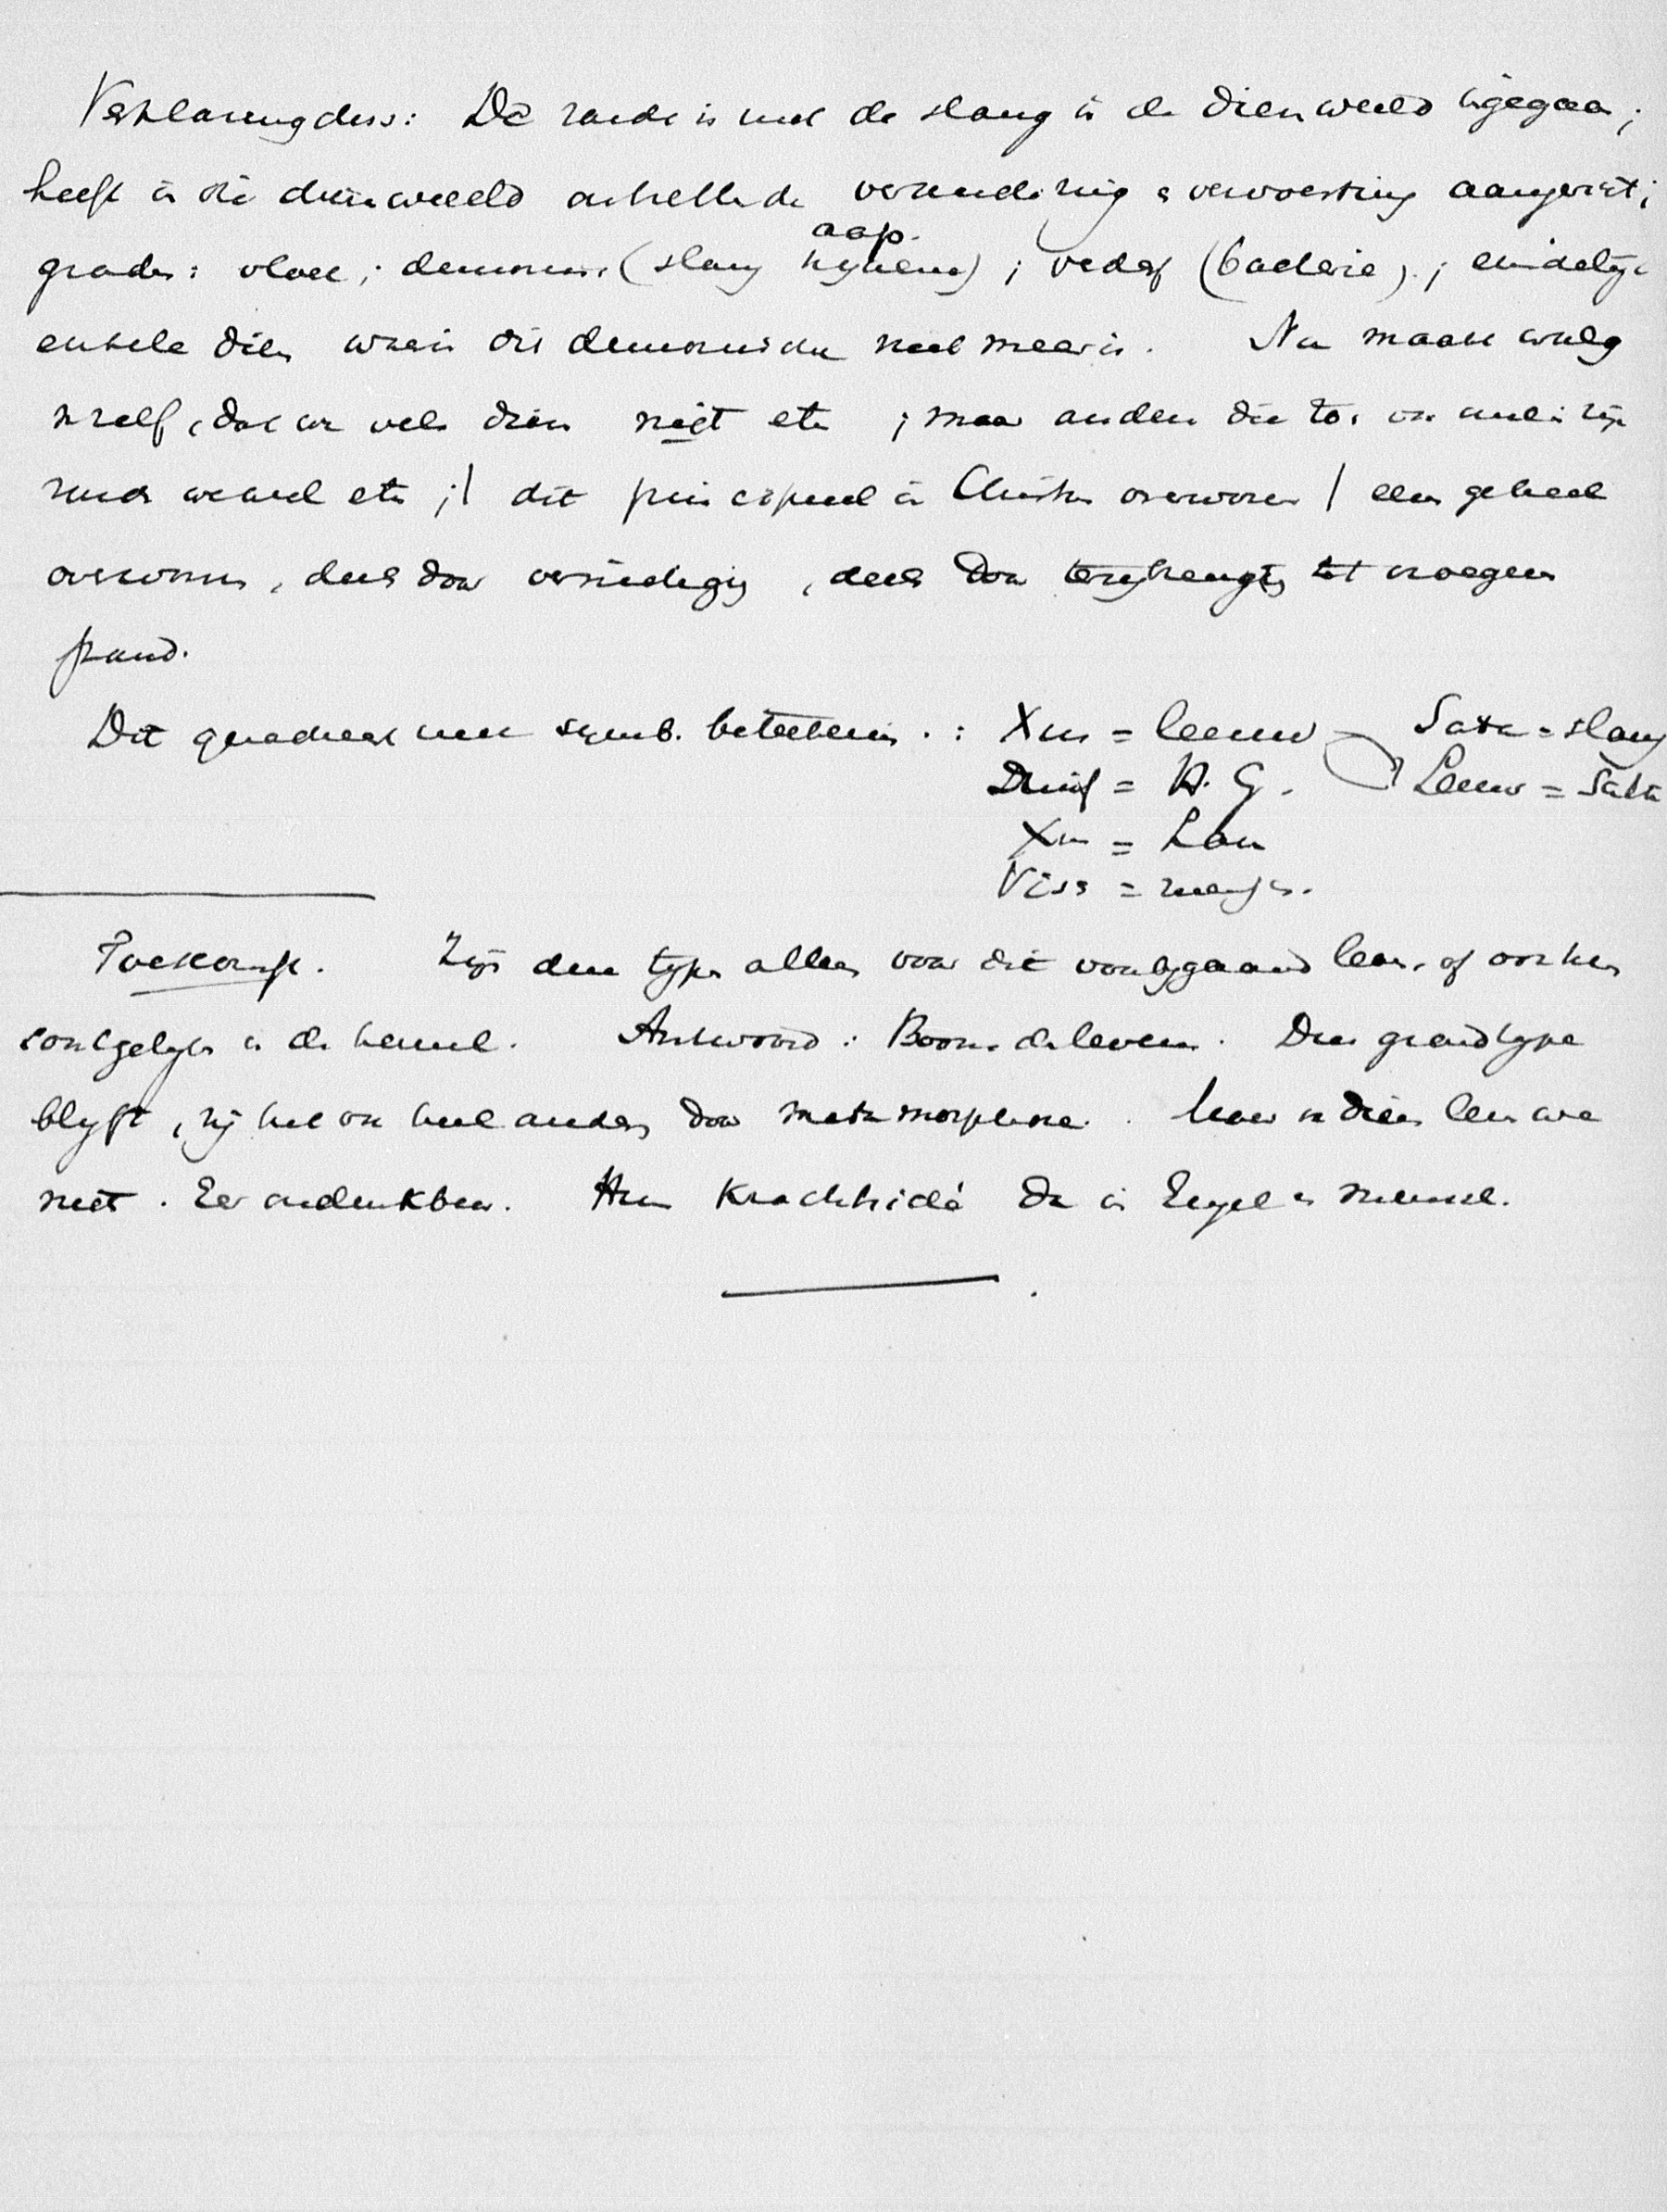 Verklaring dezes: De zonde is met de slang in de dierenwereld ingegaan;
heeft in die dierenwereld ontzettende verandering & verwoesting aangericht;
aap.
graden: vloek; demonisch (slang hyhena); bederf (bacterie); eindelijk
enkele dieren waarin dit demonische niet meer is. Nu maakt walg
in zelf, dat we vele dieren niet eten; maar anderen die toch
eten; | dit principieel in Christus overwonnen | eens geheel
overwonnen, deels door vernietiging, deels door terugbrenging tot vroegeren
stand.
Dit quadreert met symb. beteekenis.: Xus = leeuw Satan = slang
Duif = H. G. Leeuw = Satan
Xus = Lam
Visch = mensch.
Toekomst. Zijn deze typen alleen voor dit voorbijgaand leven, of ook hun
soortgelijken in de hemel. Antwoord: Boom des levens. Deze grondtype
blijft, zij het ook heel anders door metamorphose. Maar in dieren lezen we
niet. Eer ondenkbaar. Hun Krachtidé dan in Engel en mensch.